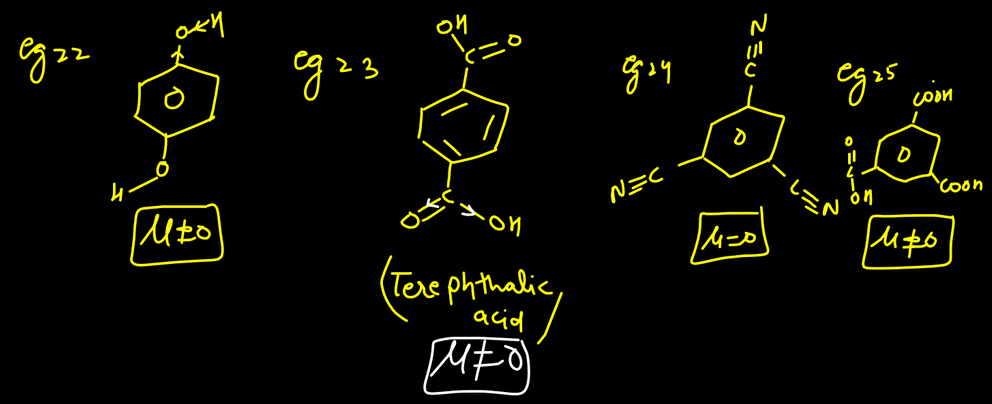 eg 22
O H
O
O
H
μ≠0
eg 23
OH
C O
C
O OH
(Terephthalic
acid)
μ≠0
eg 24
N
C
O
N≡C
C≡N
μ=0
eg 25
COOH
O
C
OH
O
COOH
μ≠0